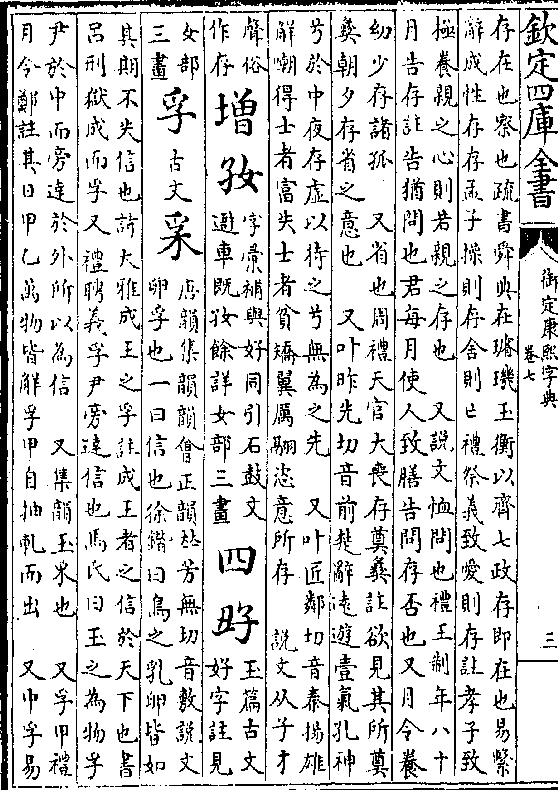 欽定四庫全書
御定康熙字典
卷七
三
存在也察也疏書舜典在璿璣玉衡以齊七政存即在也易繫
辭成性存存孟子操則存舍則亡禮祭義致愛則存註孝子致
極養親之心則若親之存也 又說文恤問也禮王制年八十
月告存註告猶問也君每月使人致膳告問存否也又月令養
幼少存諸孤 又省也周禮天官大喪存奠彝註欲見其所奠
彝朝夕存省之意也 又叶昨先切音前楚辭遠遊壹氣孔神
兮於中夜存虛以待之兮無為之先 又叶匠鄰切音秦揚雄
解嘲得士者富失士者貧矯翼厲翮恣意所存 說文从子才
聲俗
作存
增
字彙補與好同引石鼓文
避車既 餘詳女部三畫
四
玉篇古文
好字註見
女部
三畫
孚
古文
𤓽
唐韻集韻韻會正韻𠀤芳無切音敷說文
卵孚也一曰信也徐鍇曰鳥之乳卵皆如
其期不失信也詩大雅成王之孚註成王者之信於天下也書
呂刑獄成而孚又禮聘義孚尹旁達信也馬氏曰玉之為物孚
尹於中而旁達於外所以為信 又集韻玉采也 又孚甲禮
月令鄭註其日甲乙萬物皆解孚甲自抽軋而出 又中孚易